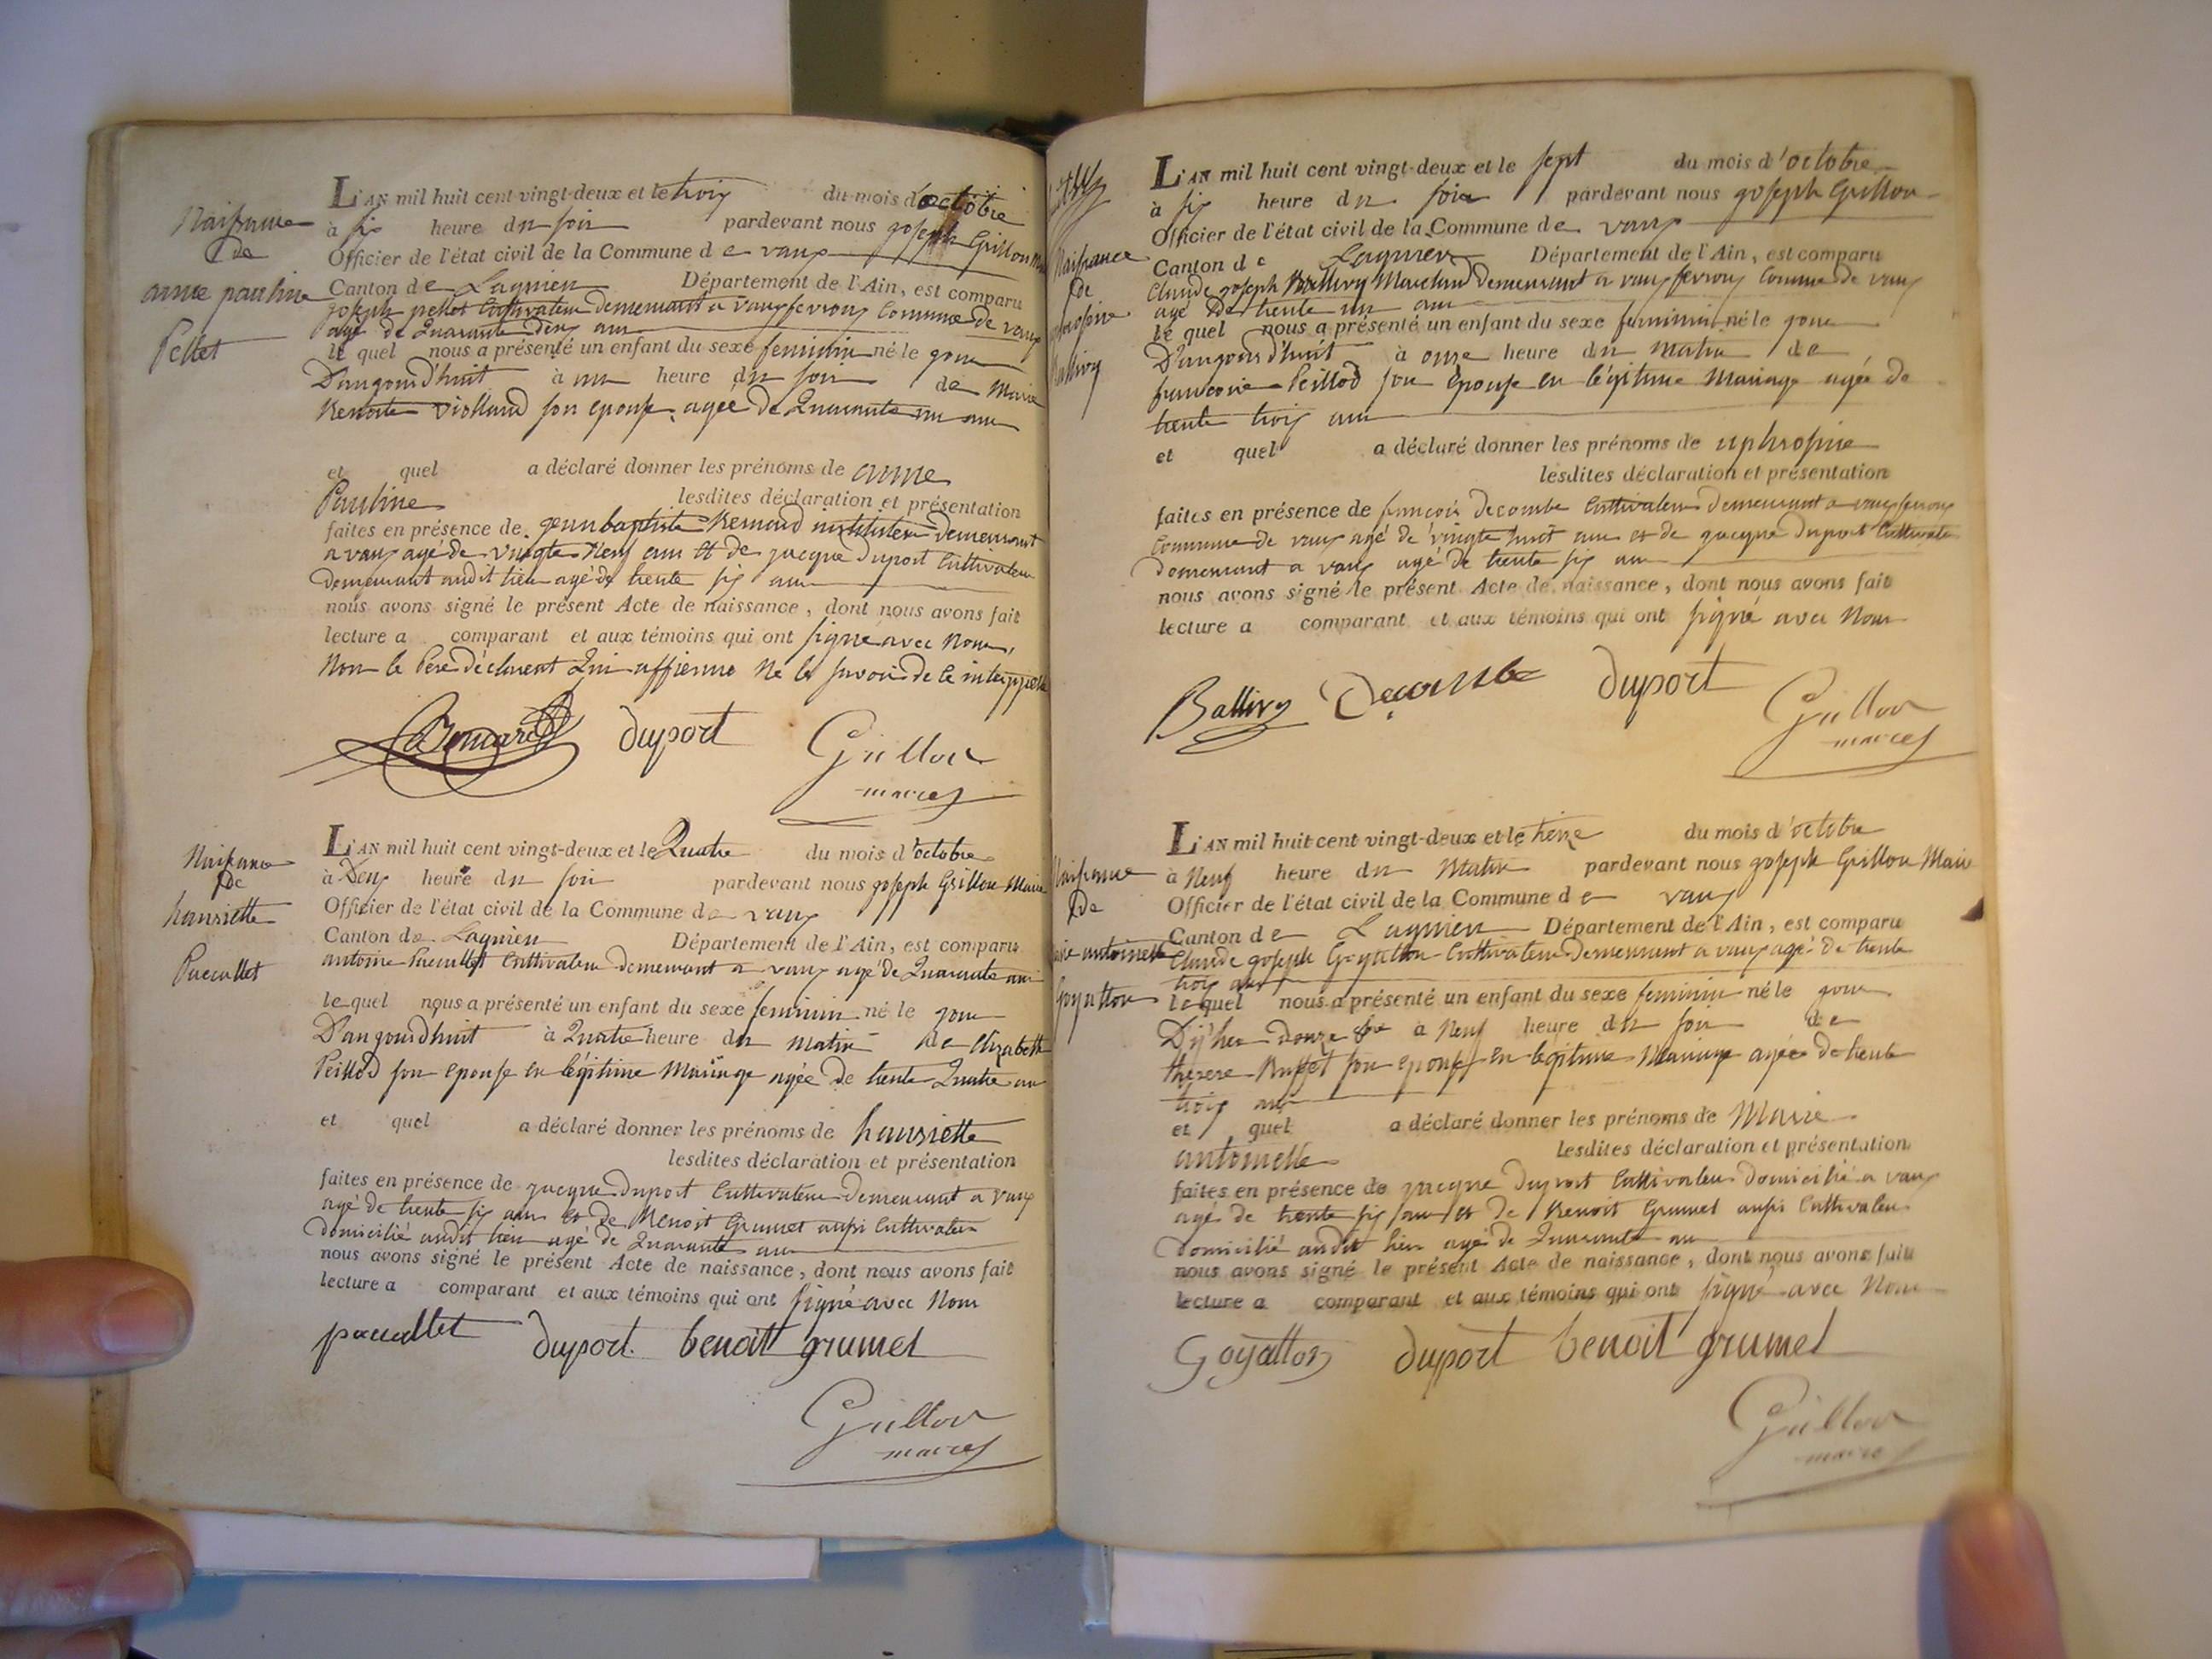 Naissance
de
anne pauline
Pellet
L'AN mil huit cent vingt-deux et le trois du mois d'octobre
à six heure du soir pardevant nous joseph Grillon
Officier de l'état civil de la Commune de vaux
Canton de Lagnieu Département de l'Ain, est comparu
joseph pellet Cultivateur demeurant a vaux fevroux Commune de vaux
agé de Quarante deux ans
le quel nous a présenté un enfant du sexe feminin né le jour
D'aujourd'huit à un heure du soir de Marie
Benoite violland son epouse, agée de Quarante un ans
et quel a déclaré donner les prénoms de anne
Pauline lesdites déclaration et présentation
faites en présence de jean baptiste Bernard instituteur demeurant
a vaux agé de vingte Neuf ans et de jacque duport Cultivateur
demeurant audit lieu agé de trente six ans
nous avons signé le présent Acte de naissance, dont nous avons fait
lecture a comparant et aux témoins qui ont signé avec Nous,
Non le Pere déclarent Qui affirme Ne le savoir de ce
Bernard duport Grillon
maire
Naissance
de
hansiette
Pacuillet
L'AN mil huit cent vingt-deux et le Quatre du mois d'octobre
à Deux heure du soir pardevant nous joseph Grillon Maire
Officier de l'état civil de la Commune de vaux
Canton de Lagnieu Département de l'Ain, est comparu
antoine Cultivateur demeurant a vaux agé de Quarante ans
le quel nous a présenté un enfant du sexe feminin né le jour
D'aujourd'huit à Quatre heure du matin de Elizabeth
Peillod son epouse en légitime Mariage agée de trente Quatre an
et quel a déclaré donner les prénoms de hansiette
lesdites déclaration et présentation
faites en présence de jacque duport Cultivateur demeurant a vaux
agé de trente six ans et de Benoit Grumet aussi Cultivateur
domicilié audit lieu agé de Quarante ans
nous avons signé le présent Acte de naissance, dont nous avons fait
lecture a comparant et aux témoins qui ont signé avec Nous
duport. benoit grumet
Grillon
maire
Naissance
de
uphrosine
Ballivy
L'AN mil huit cent vingt-deux et le sept du mois d'octobre
à six heure du soir pardevant nous joseph Grillon
Officier de l'état civil de la Commune de vaux
Canton de Lagnieu Département de l'Ain, est comparu
Claude joseph Ballivy Marchand demeurant a vaux fevroux Commune de vaux
agé De trente un ans
le quel nous a présenté un enfant du sexe feminin né le jour
D'aujourd'huit à onze heure du matin de
francoise Peillod son Epouse en légitime Mariage agée de
trente trois ans
et quel a déclaré donner les prénoms de uphrosine
lesdites déclaration et présentation
faites en présence de francois decombe Cultivateur demeurant a vaux fevroux
Commune de vaux agé de vingte huit ans et de jacque duport Cultivate
demeurant a vaux agé de trente six ans
nous avons signé le présent Acte de naissance, dont nous avons fait
lecture a comparant et aux témoins qui ont signé avec Nous
Ballivy Decombe duport Grillon
maire
Naissance
de
Marie antoinette
Goyatton
L'AN mil huit cent vingt-deux et le treize du mois d'octobre
à Neuf heure du Matin pardevant nous joseph Grillon Maire
Officier de l'état civil de la Commune de vaux
Canton de Lagnieu Département de l'Ain, est comparu
Claude joseph Goyatton Cultivateur demeurant a vaux agé de trente
trois ans
le quel nous a présenté un enfant du sexe feminin né le jour
D'ÿher douze à Neuf heure du soir de
therese Buffet son epouse en legitime Mariage agée de trente
trois ans
et quel a déclaré donner les prénoms de Marie
antoinette lesdites déclaration et présentation
faites en présence de jacque duport Cultivateur domicilié a vaux
agé de trente six ans et de Benoit Grumet aussi Cultivateur
domicilié audit lieu agé de Quarante ans
nous avons signé le présent Acte de naissance, dont nous avons fait
lecture a comparant et aux témoins qui ont signé avec Nous
Goyatton duport benoit grumet
Grillon
maire